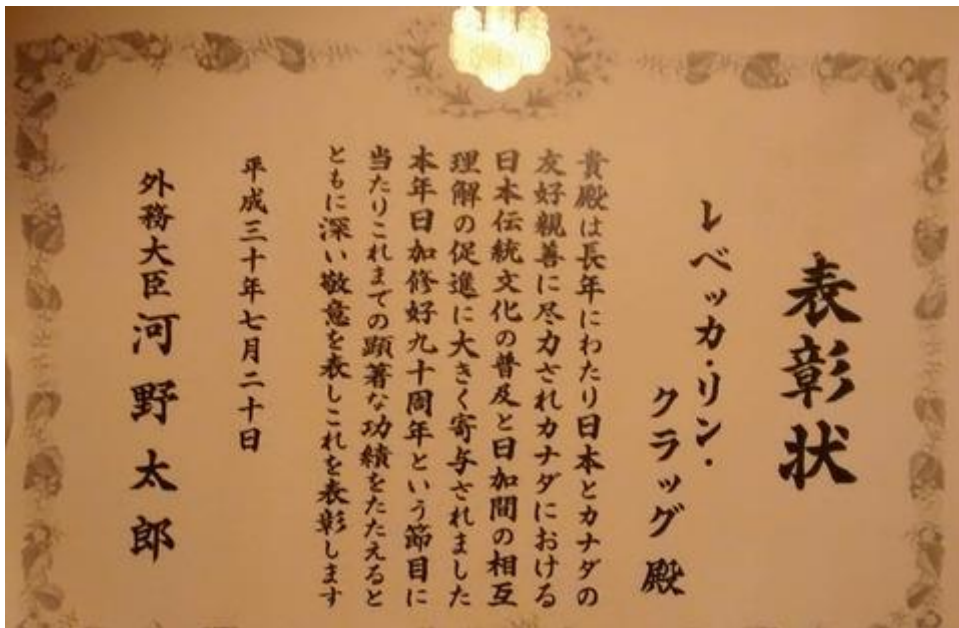 表彰状
レベッカ・リン・
クラッグ殿
貴殿は長年にわたり日本とカナダの
友好親善に尽力されカナダにおける
日本伝統文化の普及と日加間の相互
理解の促進に大きく寄与されました
本年日加修好九十周年という節目に
当たりこれまでの顕著な功績をたたえると
ともに深い敬意を表しこれを表彰します
平成三十年七月二十日
外務大臣河野太郎